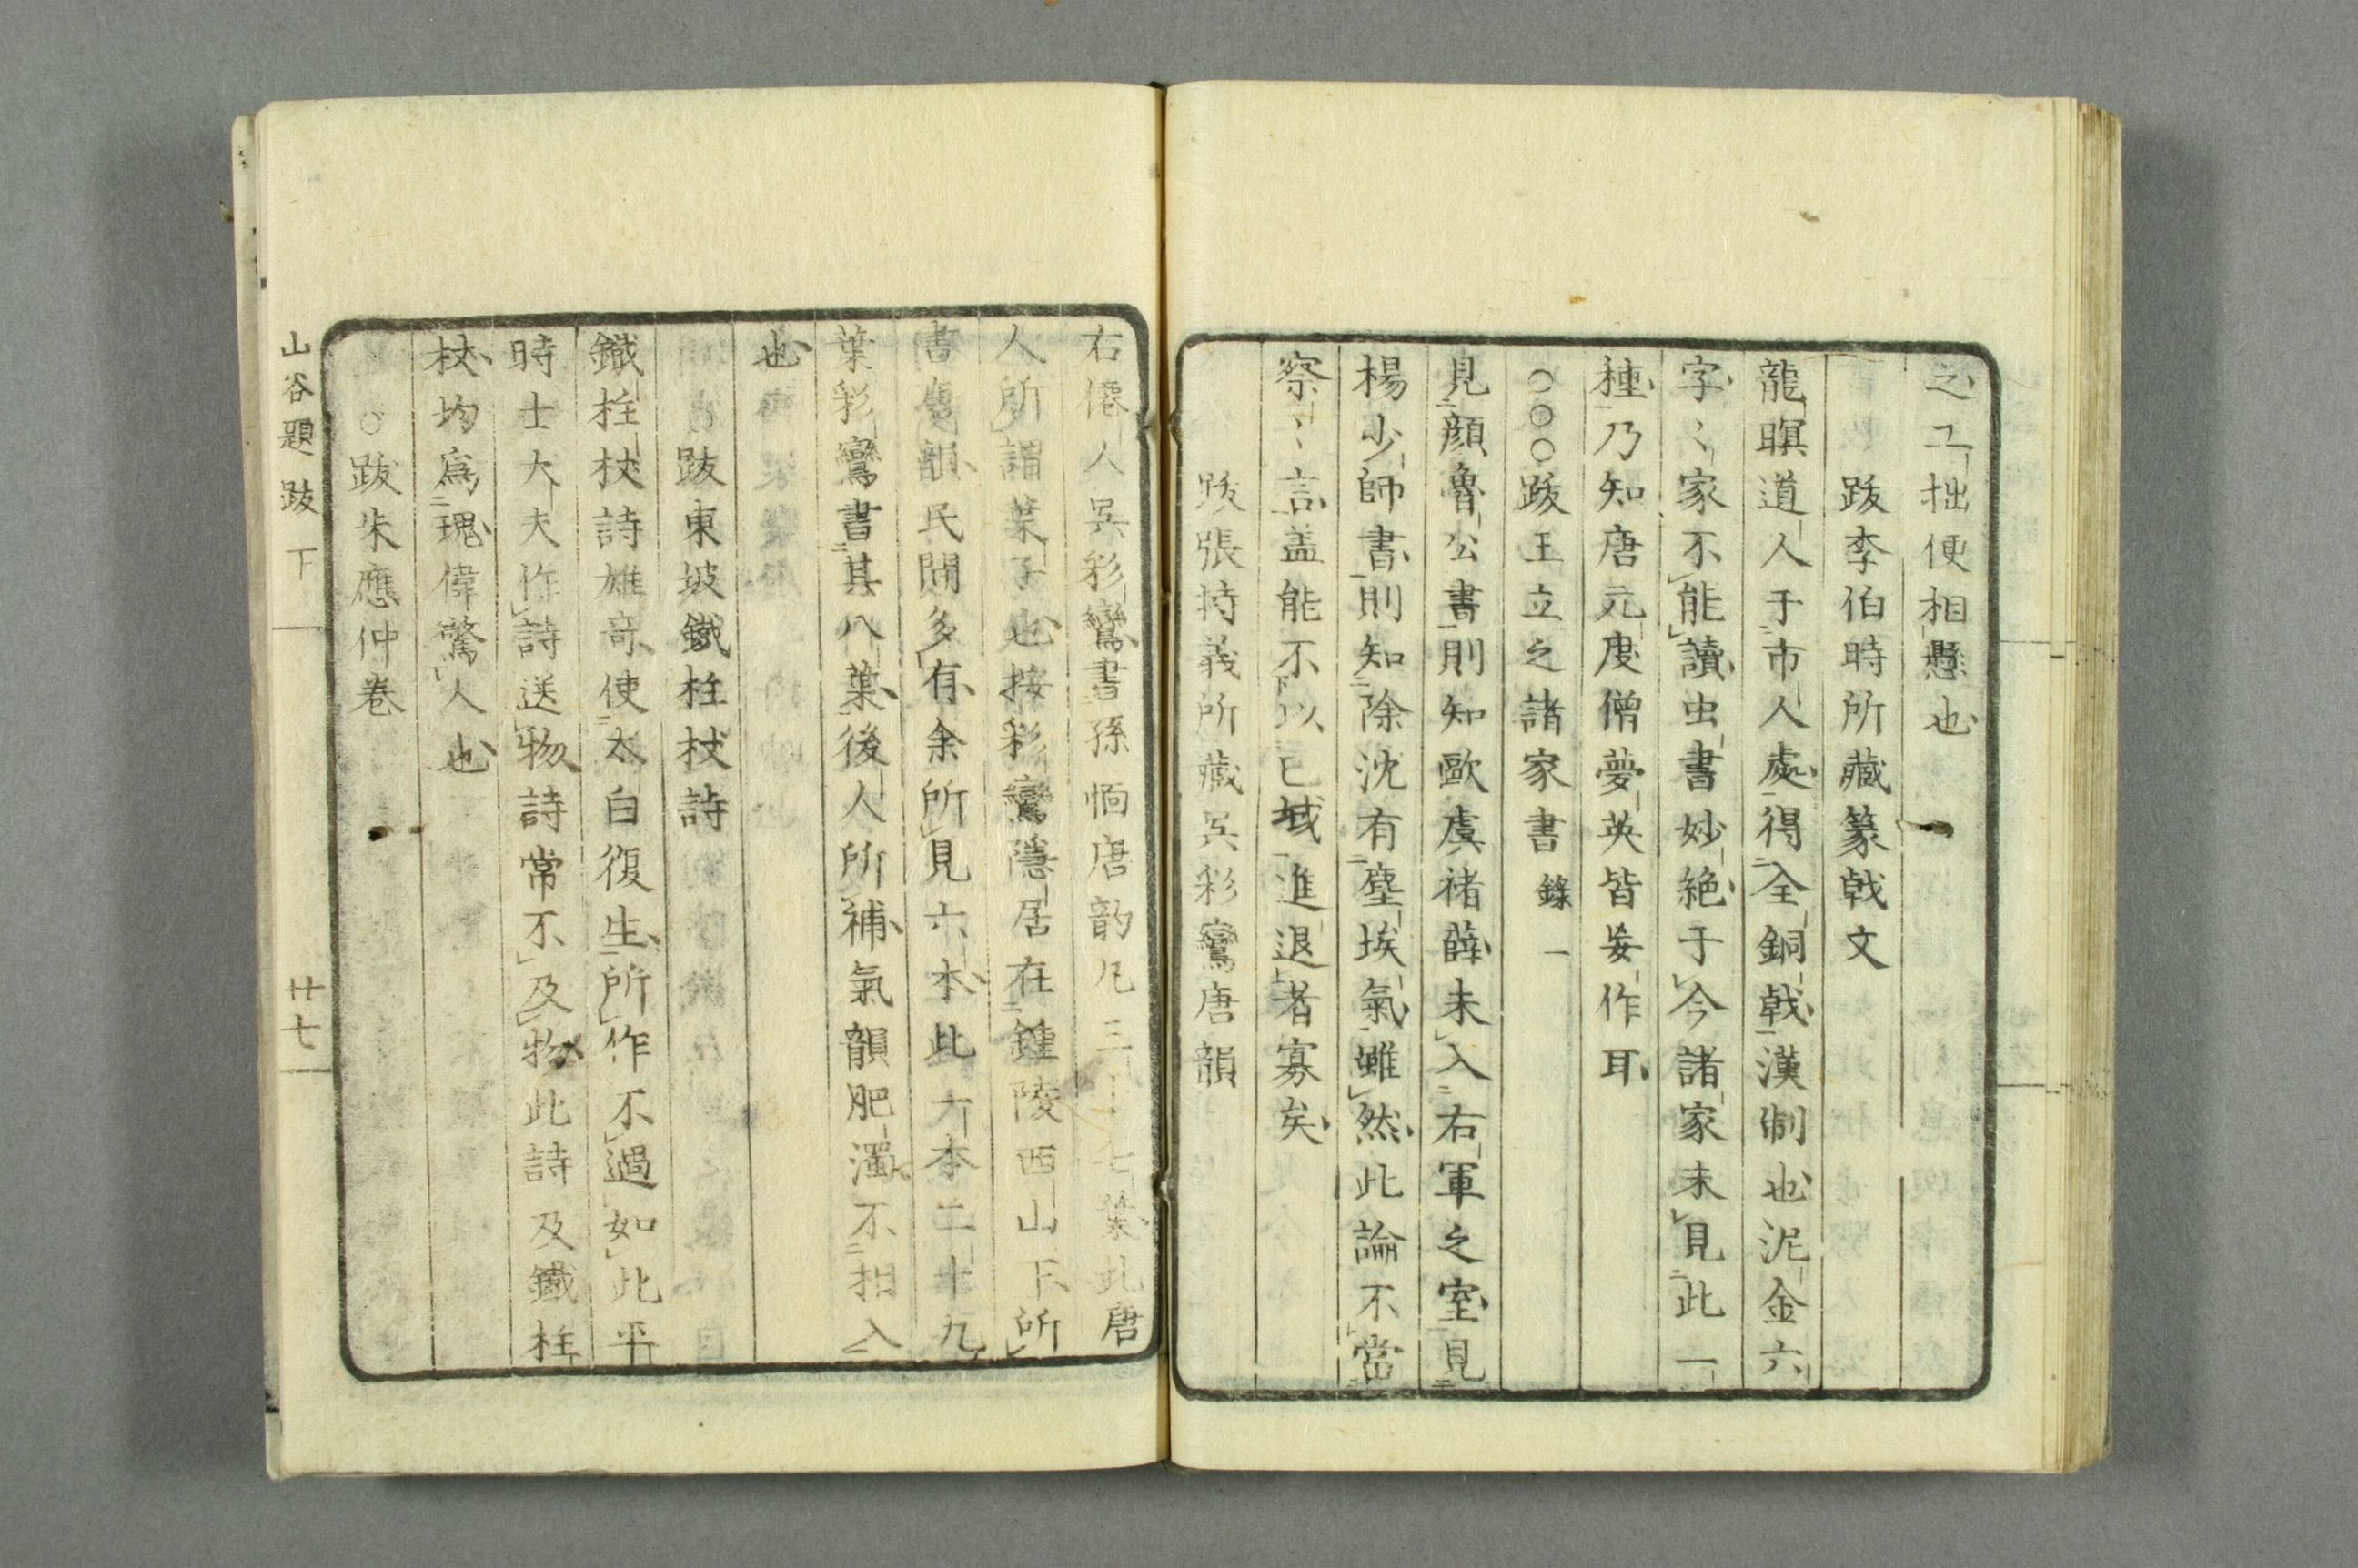 之工拙便相懸也
跋李伯時所藏篆戟文
龍瞑道人于市人處得全銅戟漢制也泥金六
字〻家不能讀虫書妙絶于今諸家未見此一
種乃知唐元度僧夢英皆妄作耳
○○○跋王立之諸家書 錄一
見顔魯公書則知歐虞褚薛未入右軍之室見
楊少師書則知除沈有塵埃氣雖然此論不當
察〻言盖能不以己域進退者寡矣
跋張持義所藏吳彩鸞唐韻
右僊人吳彩鸞書孫愐唐韵凡三十七葉此唐
人所謂葉子也按彩鸞隱居在鍾陵西山下所
書唐韻民間多有余所見六本此六本二十九
葉彩鸞書其八葉後人所補氣韻肥濁不相入
也
○跋東坡鐵柱杖詩
鐵柱杖詩雄竒使太白復生所作不過如此平
時士大夫作詩送物詩常不及物此詩及鐵柱
杖均爲瑰偉驚人也
○跋朱應仲卷
山谷題跋下
廿七